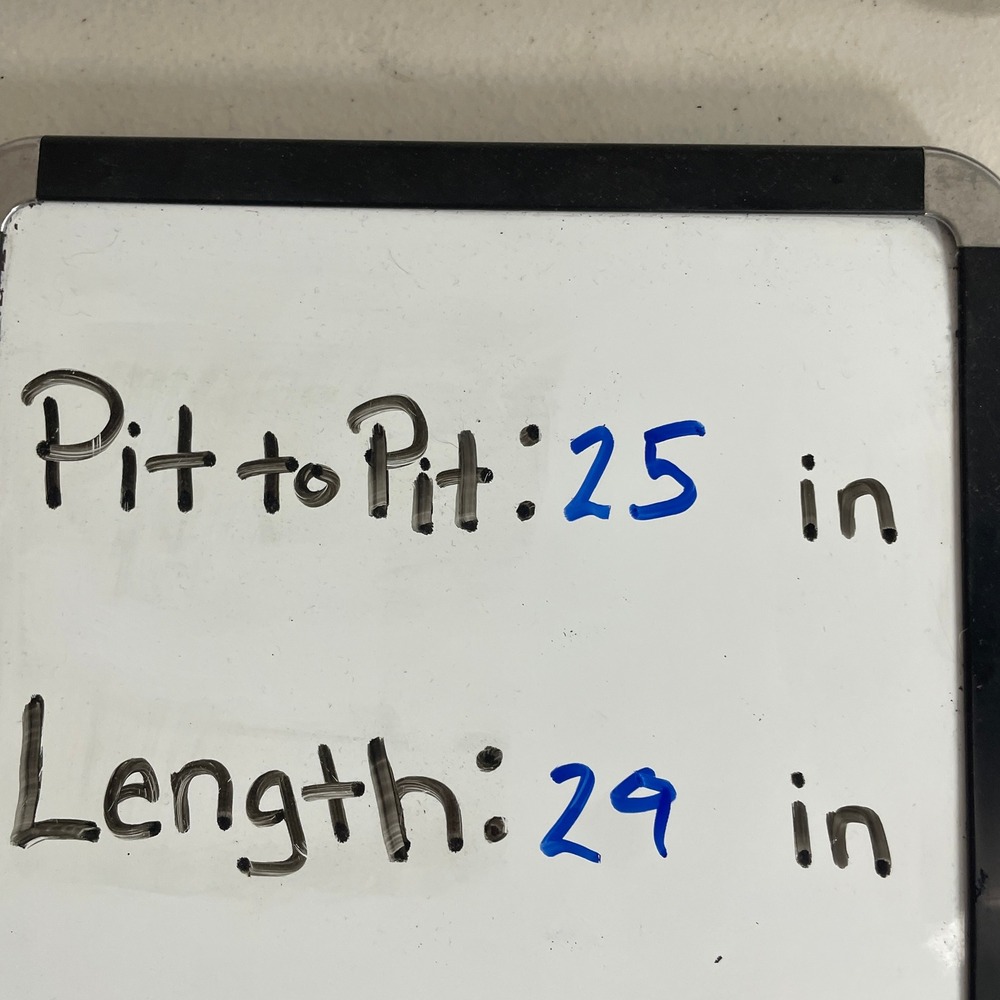 Pit to Pit: 25 in
Length: 29 in